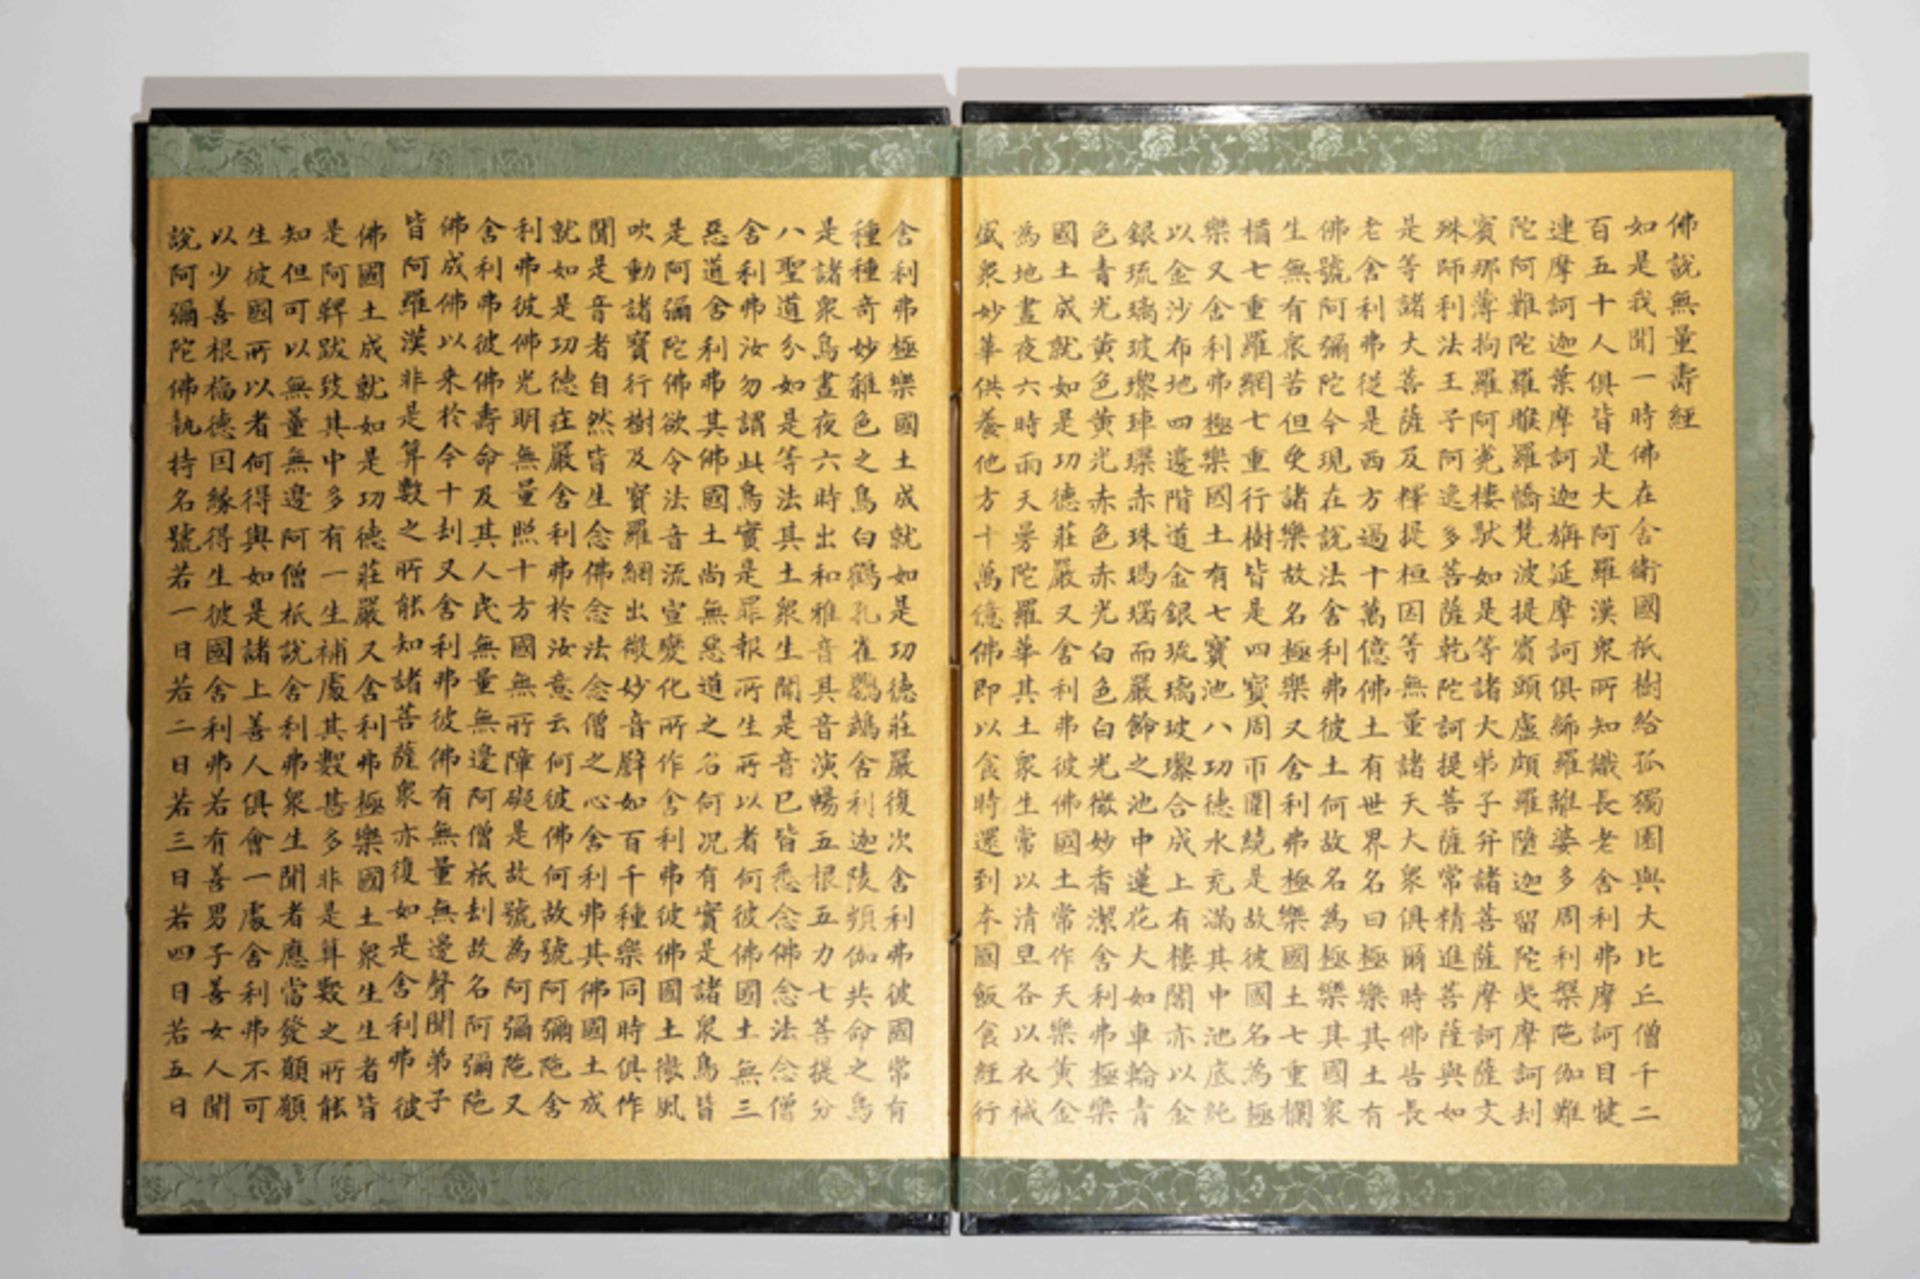 佛說無量壽經
如是我聞一時佛在舍衛國祇樹給孤獨園與大比丘僧千二
百五十人俱皆是大阿羅漢衆所知識長老舍利弗摩訶目犍
連摩訶迦葉摩訶迦旃延摩訶俱絺羅離婆多周利槃陁伽難
陀阿難陀羅睺羅憍梵波提賓頭盧頗羅墮迦留陀夷摩訶劫
賓那薄拘羅阿㝹樓馱如是等諸大弟子并諸菩薩摩訶薩文
殊師利法王子阿逸多菩薩乾陀訶提菩薩常精進菩薩與如
是等諸大菩薩及釋提桓因等無量諸天大衆俱爾時佛告長
老舍利弗從是西方過十萬億佛土有世界名曰極樂其土有
佛號阿彌陀今現在說法舍利弗彼土何故名為極樂其國衆
生無有衆苦但受諸樂故名極樂又舍利弗極樂國土七重欄
楯七重羅網七重行樹皆是四寶周帀圍繞是故彼國名為極
樂又舍利弗極樂國土有七寶池八功德水充滿其中池底純
以金沙布地四邊階道金銀琉璃玻瓈合成上有樓閣亦以金
銀琉璃玻瓈硨磲赤珠瑪瑙而嚴飾之池中蓮花大如車輪青
色青光黃色黃光赤色赤光白色白光微妙香潔舍利弗極樂
國土成就如是功德莊嚴又舍利弗彼佛國土常作天樂黃金
為地晝夜六時雨天曼陀羅華其土衆生常以清旦各以衣裓
盛衆妙華供養他方十萬億佛即以食時還到本國飯食經行
舍利弗極樂國土成就如是功德莊嚴復次舍利弗彼國常有
種種奇妙雜色之鳥白鶴孔雀鸚鵡舍利迦陵頻伽共命之鳥
是諸衆鳥晝夜六時出和雅音其音演暢五根五力七菩提分
八聖道分如是等法其土衆生聞是音已皆悉念佛念法念僧
舍利弗汝勿謂此鳥實是罪報所生所以者何彼佛國土無三
惡道舍利弗其佛國土尚無惡道之名何况有實是諸衆鳥皆
是阿彌陀佛欲令法音流宣變化所作舍利弗彼佛國土微風
吹動諸寶行樹及寶羅網出微妙音譬如百千種樂同時俱作
聞是音者自然皆生念佛念法念僧之心舍利弗其佛國土成
就如是功德莊嚴舍利弗於汝意云何彼佛何故號阿彌陁舍
利弗彼佛光明無量照十方國無所障礙是故號為阿彌陁又
舍利弗彼佛壽命及其人民無量無邊阿僧祇劫故名阿彌陁
佛成佛以來於今十劫又舍利弗彼佛有無量無邊聲聞弟子
皆阿羅漢非是算數之所能知諸菩薩衆亦復如是舍利弗彼
佛國土成就如是功德莊嚴又舍利弗極樂國土衆生生者皆
是阿鞞跋致其中多有一生補處其數甚多非是算數之所能
知但可以無量無邊阿僧祇說舍利弗衆生聞者應當發願願
生彼國所以者何得與如是諸上善人俱會一處舍利弗不可
以少善根福德因緣得生彼國舍利弗若有善男子善女人聞
說阿彌陀佛執持名號若一日若二日若三日若四日若五日